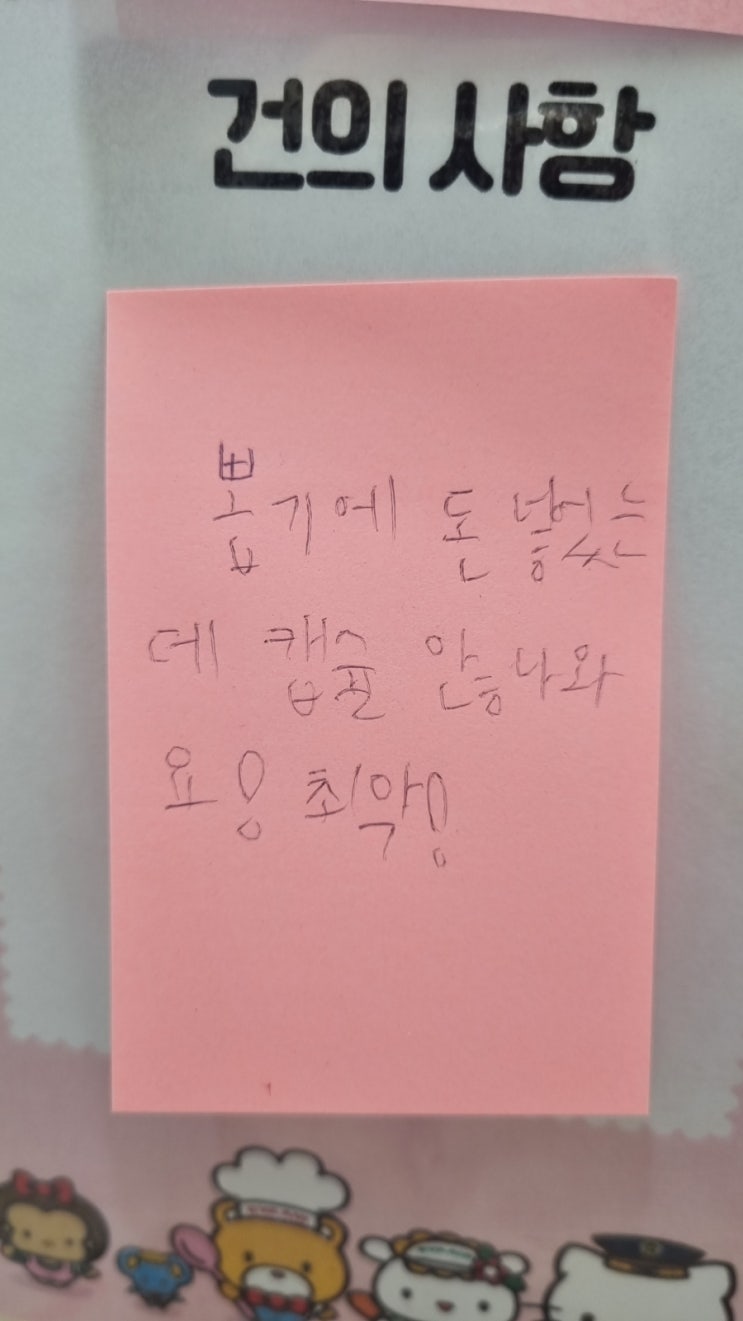 건의 사항
뽑기에 돈 넣엇는
데 캡슐 않나와
요! 최악!